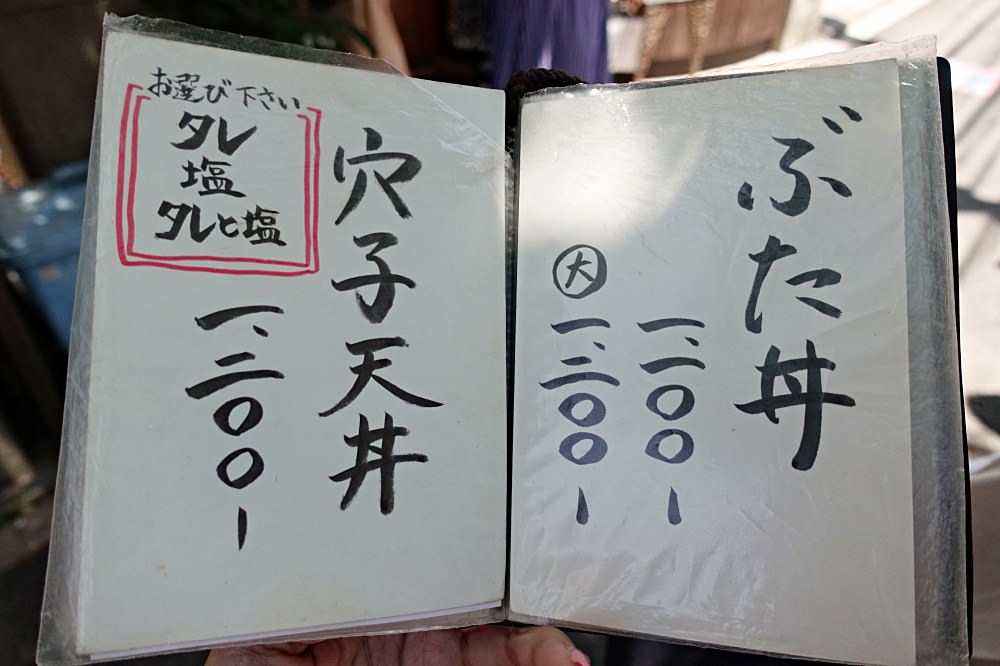 ぶた丼
一、一〇〇ー
大 一、二〇〇ー
穴子天井
お選び下さい
タレ
塩
タレと塩
一、二〇〇ー